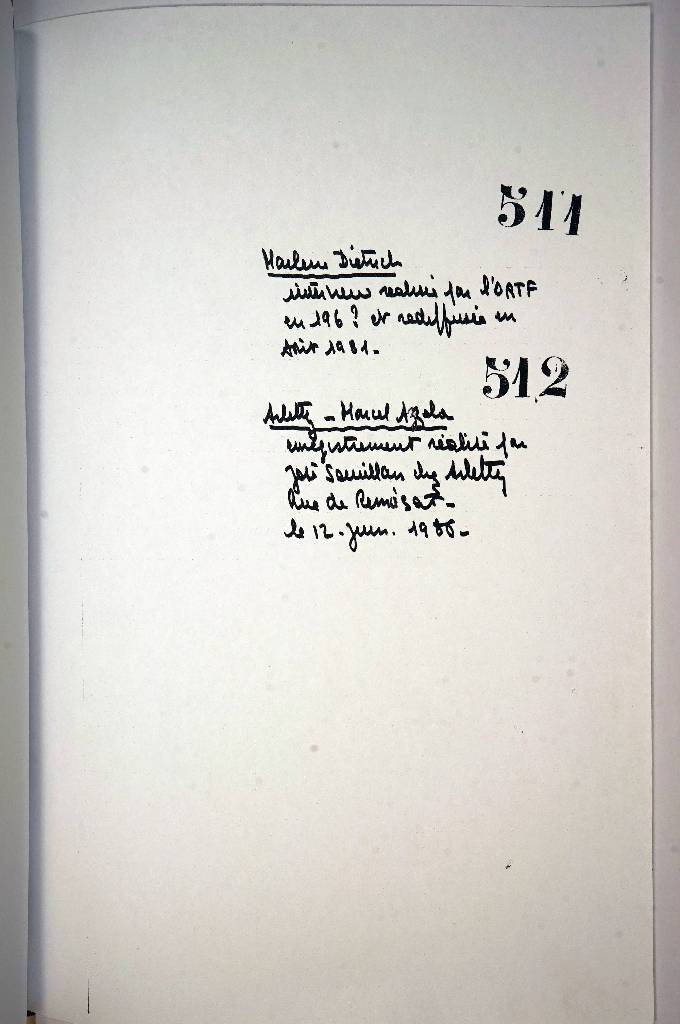 511
Marlene Dietrich
interview realisé par l'ORTF
en 196? et rediffusée en
Août 1981.
512
Arletty - Marcel Azzola
enregistrement réalisé par
José Souillan chez Arletty
Rue de Remusat -
le 12. Juin. 1986 -